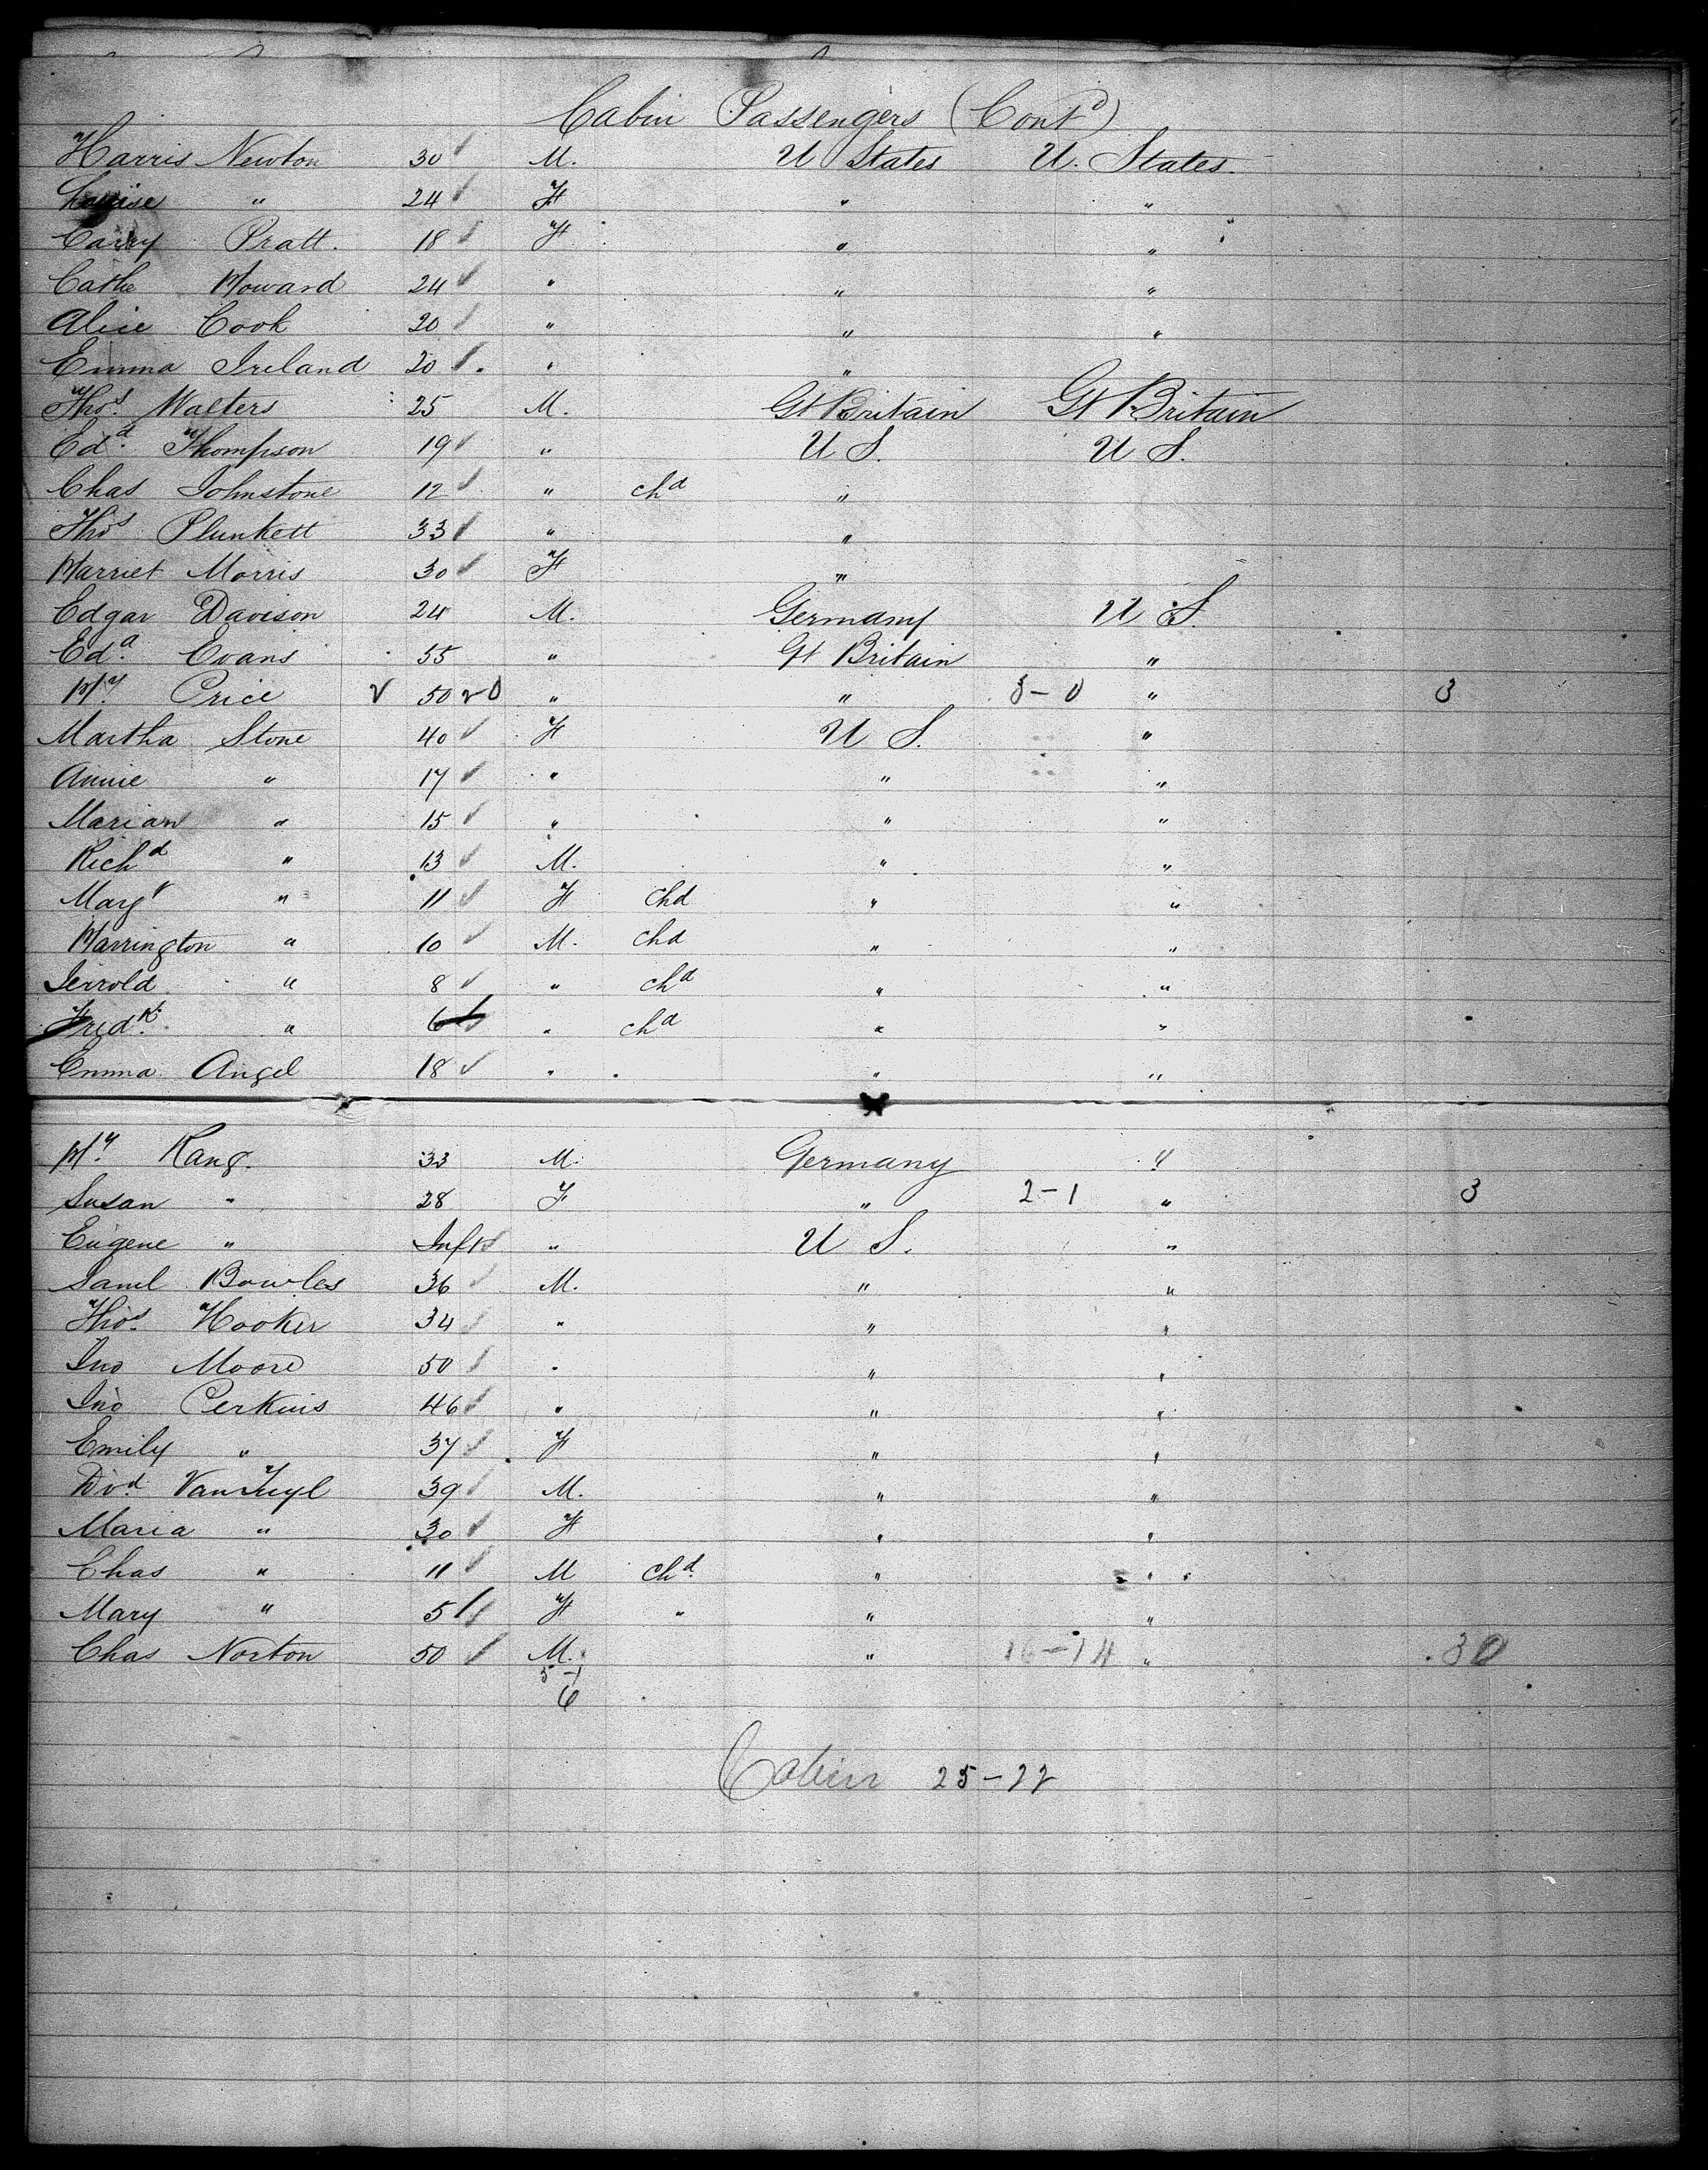 Cabin Passengers (Contd)
Harris Newton 30 M. U States U. States.
Louise " 24 F " "
Carry Pratt. 18 F " "
Cathe Howard 24 " " "
Alice Cook 20 " " "
Emma Ireland 20 " "
Thos. Walters 25 M. Gt Britain Gt Britain
Edd. Thompson 19 " U S. U S.
Chas Johnstone 12 " chd "
Thos Plunkett 33 " "
Harriet Morris 30 F "
Edgar Davison 24 M. Germany U S.
Edd. Evans 55 " Gt Britain "
Hy. Price 50 20 " " 3-0 " 3
Martha Stone 40 F U S. "
Annie " 17 " " "
Marian " 15 " " "
Richd " 13 M. " "
Margt " 11 F Chd " "
Harrington " 10 M. Chd " "
Jerrold " 8 " chd " "
Fredk. " 6 " chd " "
Emma Angel 18 " " "
Hy. Rang. 33 M. Germany "
Susan " 28 F " 2-1 " 3
Eugene " Inft " U S. "
Saml Bowles 36 M. " "
Thos. Hooker 34 " " "
Jno Moore 50 " " "
Jno Perkins 46 " " "
Emily " 37 F " "
Dvd. VanTuyl 39 M. " "
Maria " 30 F " "
Chas " 11 M Chd. " "
Mary " 5 F " " "
Chas Norton 50 M. " 16-14 " 30
5-1
6
Cabin 25-22